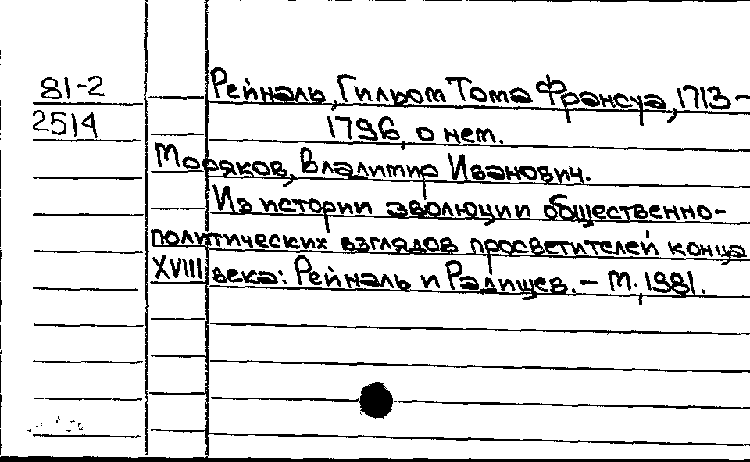 81-2 Рейналь, Гильом Тома Франсуа, 1713-
2514 1796, о нем.
Моряков, Владимир Иванович.
Из истории эволюции общественно-
политических взглядов просветителей конца
XVIII века: Рейналь и Радищев. - М., 1981.